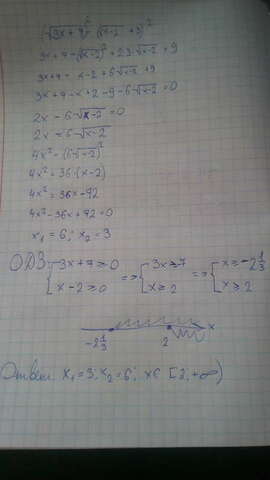 (√3x+7)² = (√x-2 + 3)²
3x+7=(√x-2)²+2·3√x-2+9
3x+7=x-2+6√x-2+9
3x+7-x+2-9-6√x-2=0
2x-6√x-2=0
2x=6√x-2
4x²=(6√x-2)²
4x²=36·(x-2)
4x²=36x-72
4x²-36x+72=0
x₁=6; x₂=3
ОДЗ: {3x+7≥0 x-2≥0 => {3x≥-7 x≥2 => {x≥-2 1/3 x≥2
-2 1/3 2 x
Ответ: x₁=3; x₂=6; x∈[2,+∞)